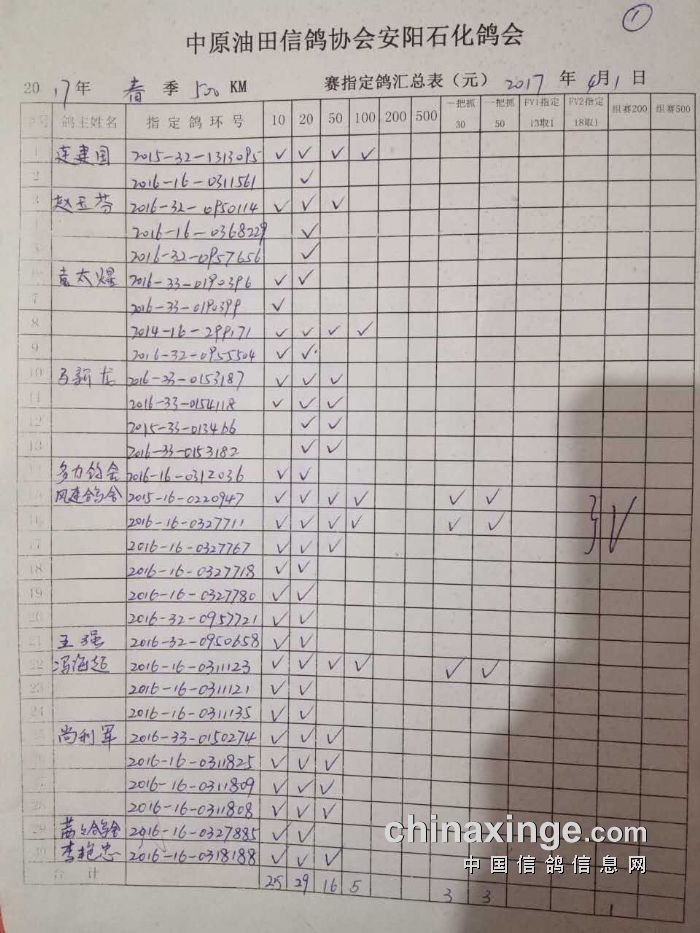 ①
中原油田信鸽协会安阳石化鸽会
2017年 春 季 500 KM 赛指定鸽汇总表（元） 2017 年 4月1日
序号 鸽主姓名 指定鸽环号 10 20 50 100 200 500 一把抓30 一把抓50 FV1指定15取1 FV2指定18取1 组赛200 组赛500
1 连建国 2015-32-1313095 ✓ ✓ ✓ ✓
2 2016-16-0311561 ✓
3 赵玉芬 2016-32-0950114 ✓ ✓ ✓
2016-16-0368229 ✓
2016-32-0957656 ✓
袁太煜 2016-33-0190396 ✓ ✓
7 2016-33-0190399 ✓
8 2014-16-299171 ✓ ✓ ✓ ✓
9 2016-32-0955504 ✓ ✓
10 2016-33-0153187 ✓ ✓ ✓
11 2016-33-0154118 ✓ ✓ ✓
12 2015-33-013466 ✓ ✓
13 2016-33-0153182 ✓ ✓
2016-16-0312036 ✓ ✓
风建鸽舍 2015-16-0220947 ✓ ✓ ✓ ✓ ✓ ✓
16 2016-16-0327711 ✓ ✓ ✓ ✓ ✓ ✓ } ✓
17 2016-16-0327767 ✓ ✓ ✓
18 2016-16-0327718 ✓ ✓
19 2016-16-0327780 ✓ ✓
20 2016-32-0957721 ✓ ✓
21 王强 2016-32-0950658 ✓ ✓
22 冯海超 2016-16-0311123 ✓ ✓ ✓ ✓ ✓ ✓
23 2016-16-0311121 ✓ ✓
24 2016-16-0311135 ✓ ✓
尚利军 2016-33-0150274 ✓ ✓ ✓
2016-16-0311825 ✓ ✓ ✓
2016-16-0311809 ✓ ✓ ✓
28 2016-16-0311808 ✓ ✓ ✓
29 2016-16-0327885 ✓ ✓
30 李艳忠 2016-16-0318188 ✓ ✓ ✓
合计 25 29 16 5 3 3 1
chinaxinge.com
中国信鸽信息网